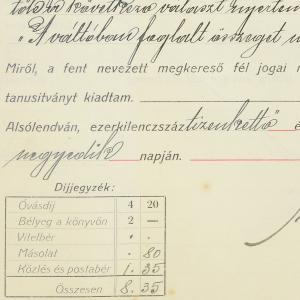 következő választ nyertem
"A váltóban foglalt összeget
Miről, a fent nevezett megkereső fél jogai
tanusitványt kiadtam.
Alsólendván, ezerkilenczszáz tizenkettő
negyedik napján.
Díjjegyzék:
Óvásdíj 4 20
Bélyeg a könyvön 2 —
Vitelbér . .
Másolat . 80
Közlés és postabér 1. 35
Összesen 8. 35